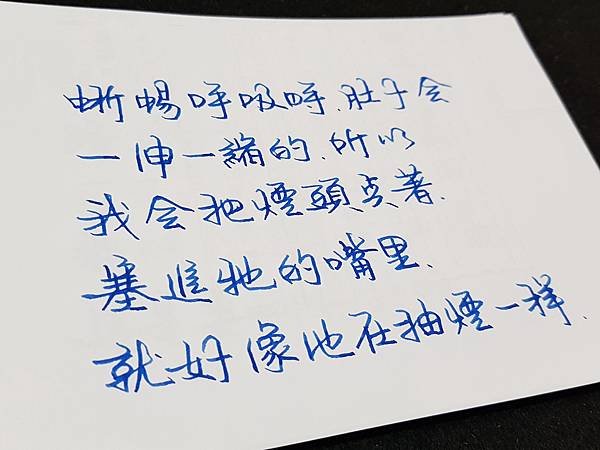 蜥蜴呼吸時.肚子会
一伸一縮的.所以
我会把煙頭点著.
塞進牠的嘴里.
就好像他在抽煙一样.